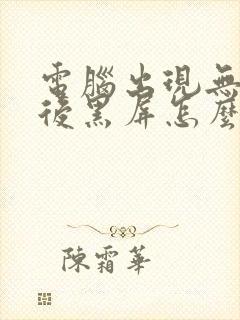 電腦出現無
後黑屏怎麼
陳霜華